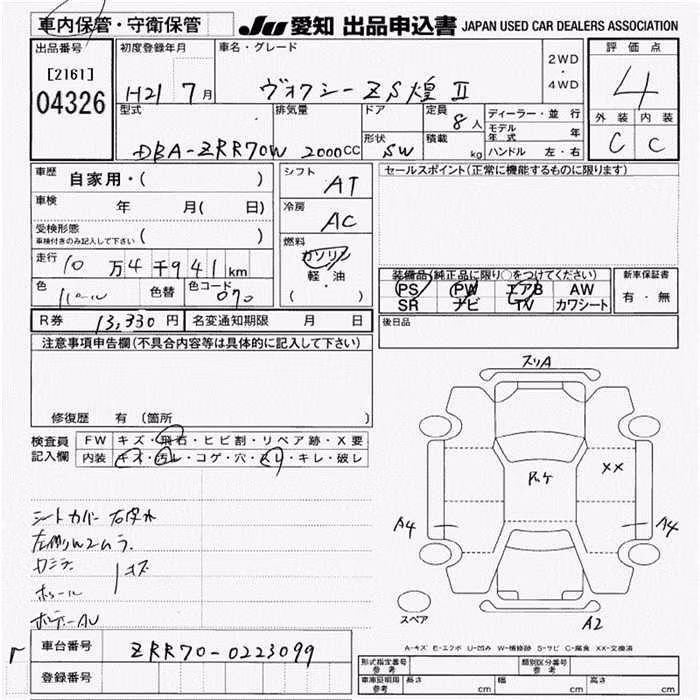 車内保管・守衛保管
JU 愛知 出品申込書 JAPAN USED CAR DEALERS ASSOCIATION
出品番号
[2161]
04326
初度登録年月
H21 7月
車名・グレード
ヴォクシーZS煌Ⅱ
2WD
・
4WD
評価点
4
外装 内装
C C
型式
DBA-ZRR70W
排気量
2000CC
ドア
形状
5W
定員
8人
積載
kg
ディーラー・並行
モデル年式 年
ハンドル 左・右
車歴 自家用・( )
車検 年 月( 日)
受検形態
車検付きのみ記入して下さい ( )
走行 10万4千941km
色
色替
色コード 070
シフト
AT
冷房
AC
燃料
ガソリン
軽・油
( )
セールスポイント(正常に機能するものに限ります)
装備品(純正品に限り○をつけてください)
PS PW エアB AW
SR ナビ TV カワシート
新車保証書
有・無
R券 13,330円 名変通知期限 月 日
後日品
注意事項申告欄(不具合内容等は具体的に記入して下さい)
修復歴 有 (箇所
検査員
記入欄
FW キズ・飛石・ヒビ割・リペア跡・X要
内装 キズ・汚レ・コゲ・穴・スレ・キレ・破レ
シートカバー
キズ
スリA
XX
A4
A4
スペア
A2
A-キズ E-エクボ U-凹み W-補修跡 S-サビ C-腐食 XX-交換済
車台番号 ZRR70-0223099
登録番号
形式指定番号
参考
類別区分番号
参考
車庫証明用
参考
長さ cm 幅 cm 高さ cm